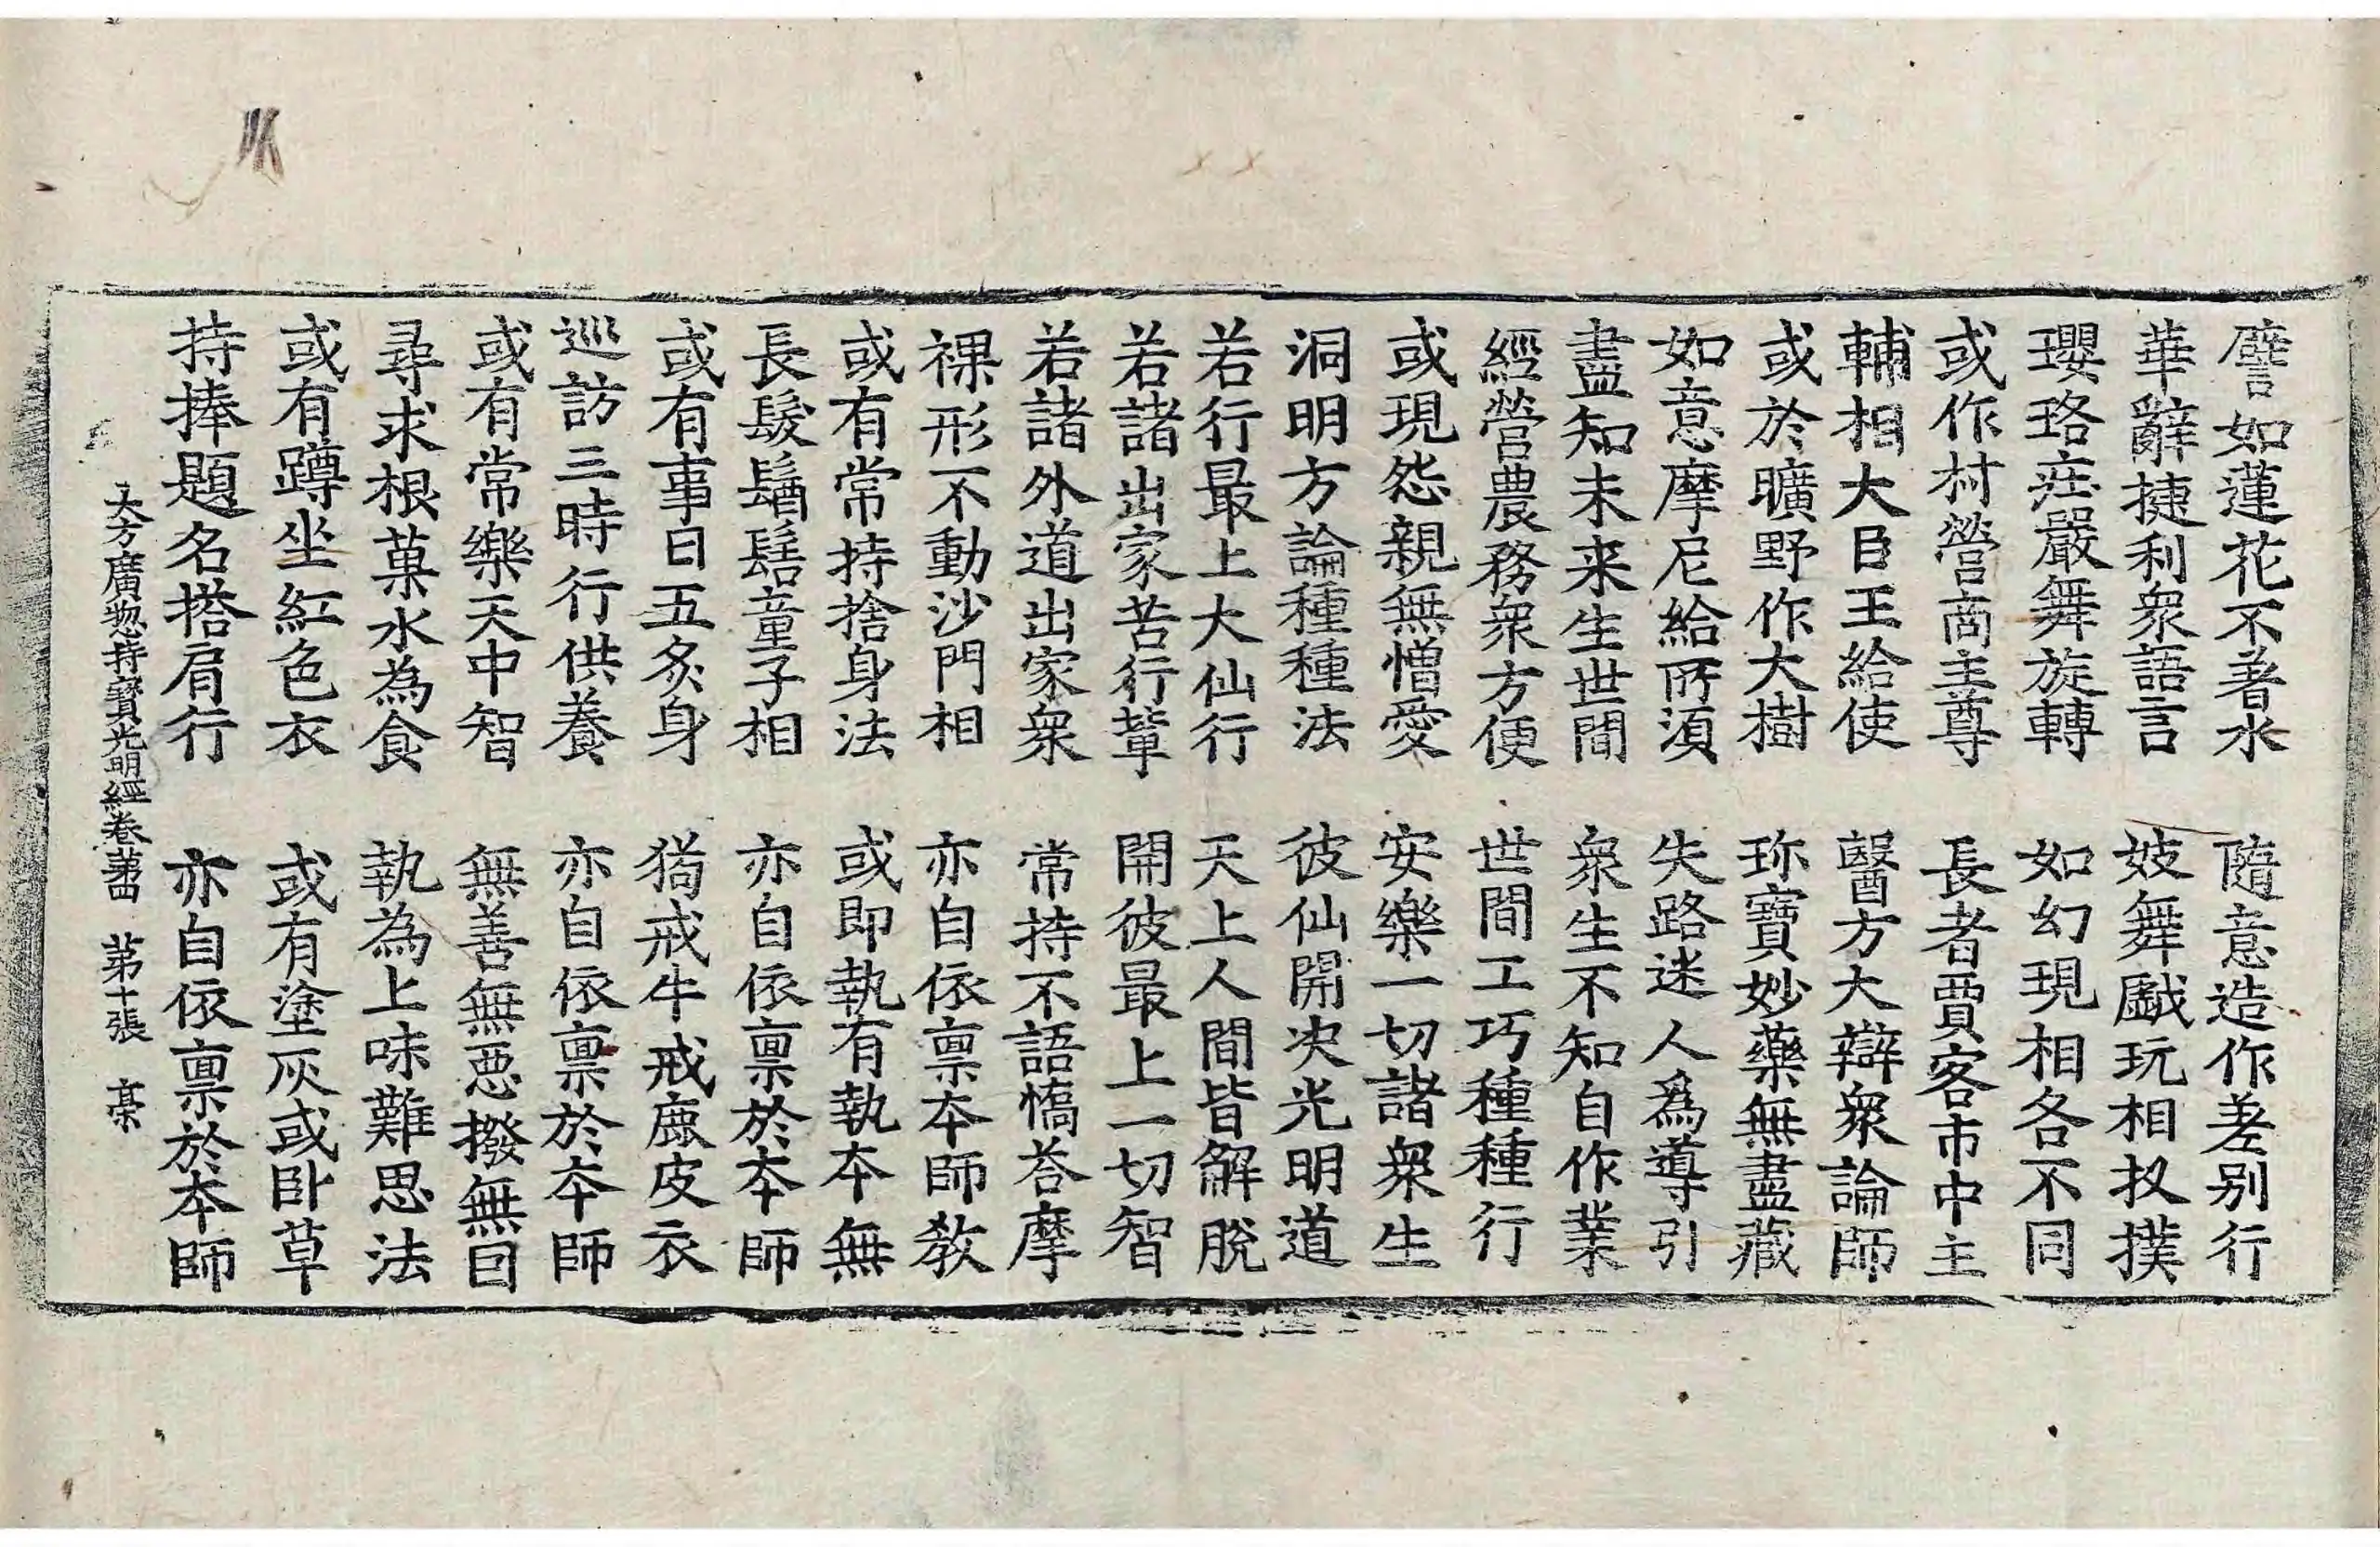 譬如蓮花不著水　隨意造作差别行
華辭捷利衆語言　妓舞戲玩相扠撲
瓔珞莊嚴舞旋轉　如幻現相各不同
或作村營商主尊　長者賈客市中主
輔相大臣王給使　醫方大辯衆論師
或於曠野作大樹　珎寶妙藥無盡藏
如意摩尼給所湏　失路迷人爲導引
盡知未来生世間　衆生不知自作業
經營農務衆方便　世間工巧種種行
或現怨親無憎愛　安樂一切諸衆生
洞明方論種種法　彼仙開决光明道
若行最上大仙行　天上人間皆解脫
若諸出家苦行輩　開彼最上一切智
若諸外道出家衆　常持不語憍荅摩
裸形不動沙門相　亦自依禀本師教
或有常持捨身法　或即執有執本無
長髮鬚髻童子相　亦自依禀於本師
或有事日五炙身　猗戒牛戒鹿皮衣
巡訪三時行供養　亦自依禀於本師
或有常樂天中智　無善無惡撥無因
尋求根菓水為食　執為上味難思法
或有蹲坐紅色衣　或有塗灰或卧草
持捧題名搭肩行　亦自依禀於本師
大方廣惣持寶光明經卷苐四　苐十張